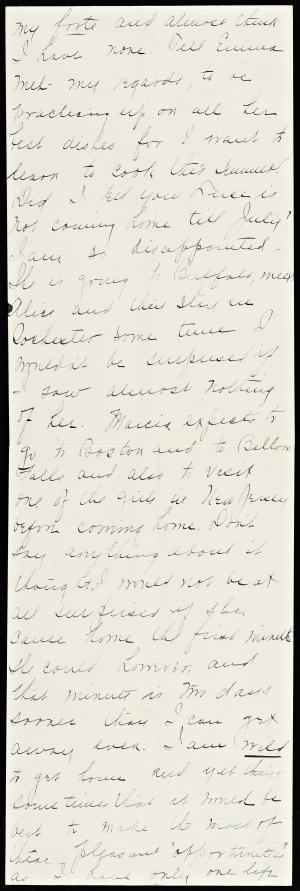 my forte and almost think
I have none. Tell Emma
with my regards, to be
practising up on all her
best dishes for I want to
learn to cook this summer.
Did I tell you Luce is
not coming home till July?
I am so disappointed -
She is going to Buffalo, meet
Alice and then stay in
Rochester some time I
wouldn't be surprised if
I saw almost nothing
of her. Marcia expects to
go to Boston and to Bellows
Falls and also to visit
one of the girls in New Jersey
before coming home. Don't
say anything about it
though. I would not be at
all surprised if she
came home the first minute
she could however, and
that minute is two days
sooner than I can get
away even. I am wild
to get home and yet think
sometimes that it would be
best to make the most of
these pleasant "opportunities"
as I have only one life